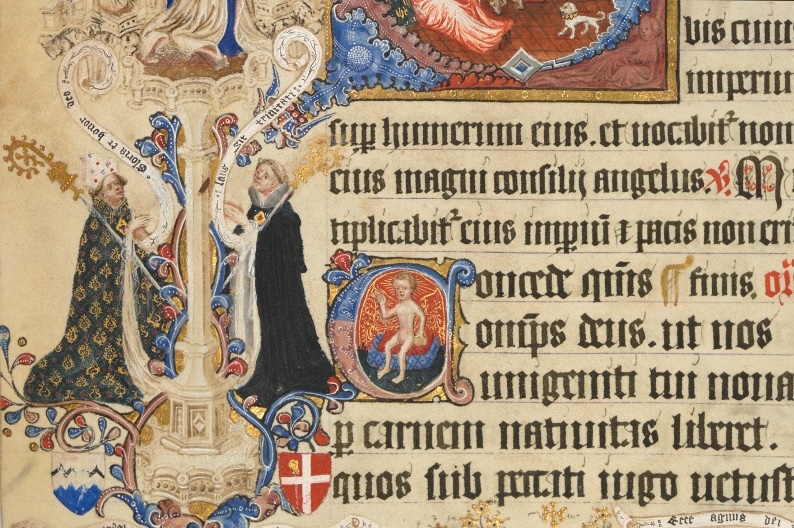 bis cuius
imperium
sup humerum eius. et uocabit non
eius magni consilij angelus. V. M
tiplicabit eius imperiu & pacis non erit
Concede qms ¶ finis. or
omps deus. ut nos
unigeniti tui noua
p carnem natiuitas liberet.
quos sub peccati iugo uetust
Gloria et honor deo
laus sit trinitati
Ecce agnus dei